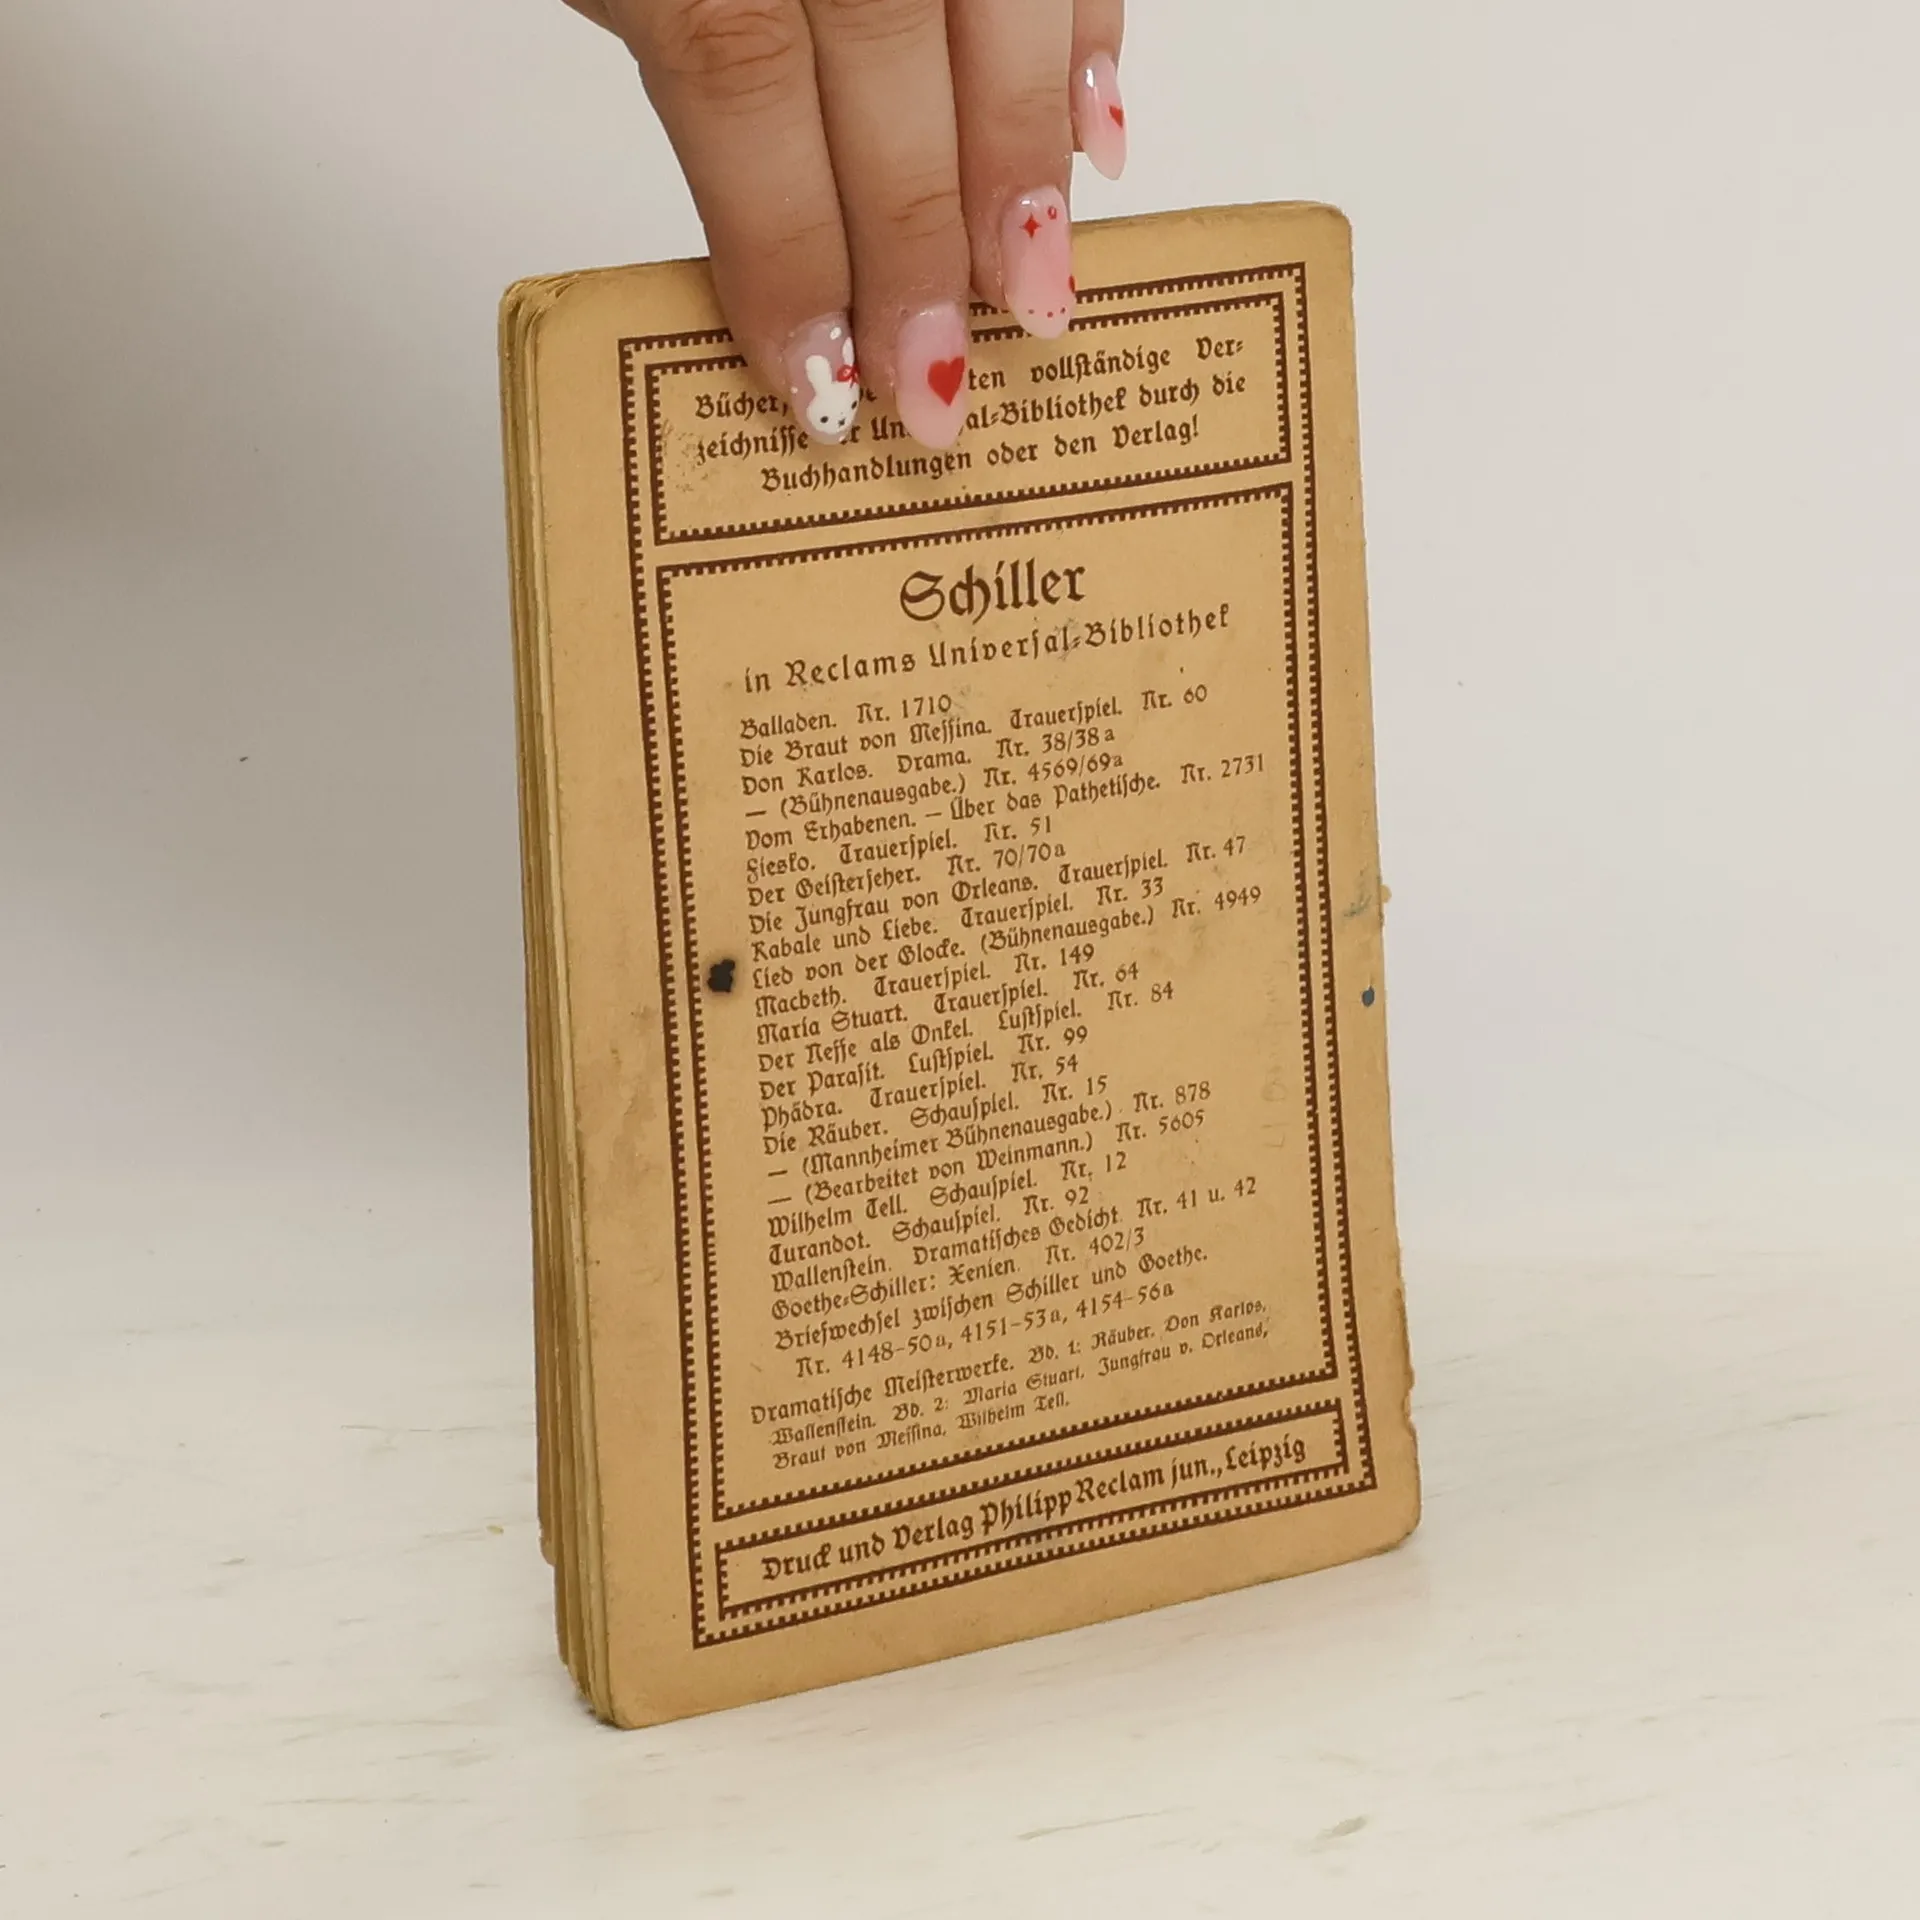 Bücher, ten vollständige Ver-
zeichnisse der Universal-Bibliothek durch die
Buchhandlungen oder den Verlag!
Schiller
in Reclams Universal-Bibliothek
Balladen. Nr. 1710
Die Braut von Messina. Trauerspiel. Nr. 60
Don Karlos. Drama. Nr. 38/38a
— (Bühnenausgabe.) Nr. 4569/69a
Vom Erhabenen. – Über das Pathetische. Nr. 2731
Fiesko. Trauerspiel. Nr. 51
Der Geisterseher. Nr. 70/70a
Die Jungfrau von Orleans. Trauerspiel. Nr. 47
Kabale und Liebe. Trauerspiel. Nr. 33
Lied von der Glocke. (Bühnenausgabe.) Nr. 4949
Macbeth. Trauerspiel. Nr. 149
Maria Stuart. Trauerspiel. Nr. 64
Der Neffe als Onkel. Lustspiel. Nr. 84
Der Parasit. Lustspiel. Nr. 99
Phädra. Trauerspiel. Nr. 54
Die Räuber. Schauspiel. Nr. 15
— (Mannheimer Bühnenausgabe.) Nr. 878
— (Bearbeitet von Weinmann.) Nr. 5605
Wilhelm Tell. Schauspiel. Nr. 12
Turandot. Schauspiel. Nr. 92
Wallenstein. Dramatisches Gedicht. Nr. 41 u. 42
Goethe-Schiller: Xenien. Nr. 402/3
Briefwechsel zwischen Schiller und Goethe.
Nr. 4148–50a, 4151–53a, 4154–56a
Dramatische Meisterwerke. Bd. 1: Räuber. Don Karlos.
Wallenstein. Bd. 2: Maria Stuart. Jungfrau v. Orleans,
Braut von Messina, Wilhelm Tell.
Druck und Verlag Philipp Reclam jun., Leipzig